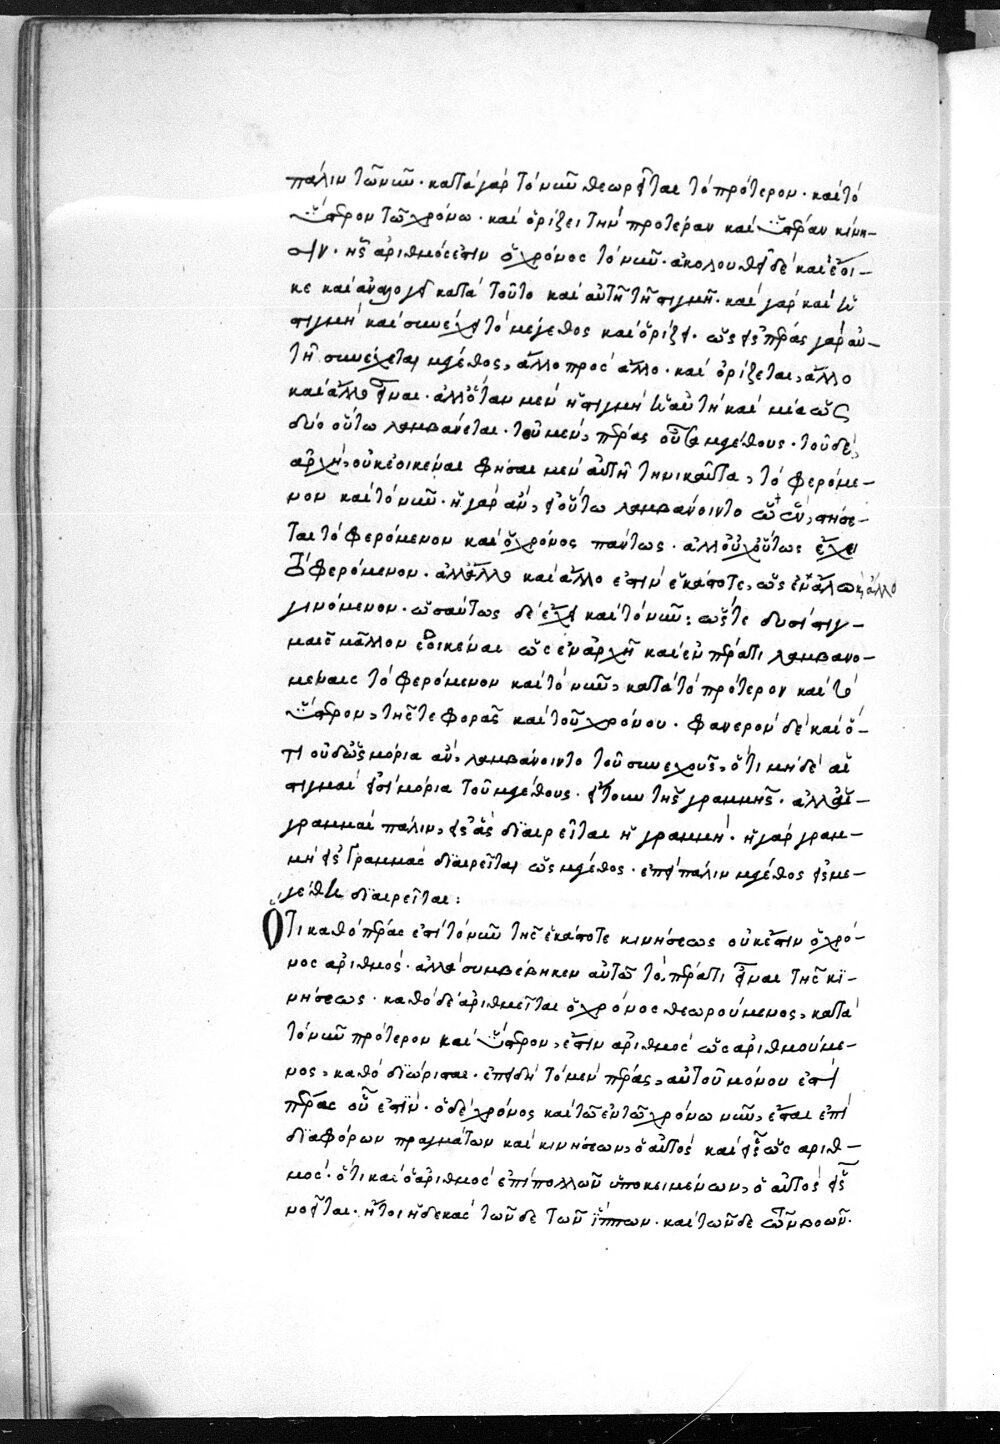 πάλιν τῶ νῦν· κατὰ γὰρ τὸ νῦν θεωρεῖται τὸ πρότερον· καὶ τὸ
ὕστερον τῶ χρόνω· καὶ ὁρίζει τὴν προτέραν καὶ ὑστέραν κίνη-
σιν· ἧς ἀριθμός ἐστιν ὁ χρόνος τὸ νῦν· ἀκολουθεῖ δὲ καὶ ἔοι-
κε καὶ ἀναλογεῖ κατὰ τοῦτο καὶ αὐτῆ τῆ στιγμῆ· καὶ γὰρ καὶ ἡ
στιγμὴ καὶ συνέχει τὸ μέγεθος καὶ ὁρίζει· ὡς εἰς πέρας γὰρ αὐ-
τῆ συνέχεται μέγεθος, ἄλλο πρὸς ἄλλο· καὶ ὁρίζεται, ἄλλο
καὶ ἄλλο εἶναι· ἀλλ' ὅταν μὲν ἡ στιγμὴ ἡ αὐτὴ καὶ μία ὡς
δύο οὕτω λαμβάνεται· τοῦ μὲν, πέρας οὖσα μεγέθους· τοῦ δὲ,
ἀρχὴ, οὐκ ἐοικέναι φήσαιμεν αὐτῆ τηνικαῦτα, τὸ φερόμε-
νον καὶ τὸ νῦν· ἢ γὰρ ἂν, εἰ οὕτω λαμβάνοιντο στήσε-
ται τὸ φερόμενον καὶ ὁ χρόνος πάντως· ἀλλ' οὐχ οὕτως ἔχει
τὸ φερόμενον· ἀλλ' ἄλλο καὶ ἄλλο ἐστὶν ἑκάστοτε, ὡς ἐν ἄλλω καὶ ἄλλω
γινόμενον· ὡσαύτως δὲ ἔχει καὶ τὸ νῦν: ὥστε δυσὶ στιγ-
μαῖς μᾶλλον ἐοικέναι ὡς ἐν ἀρχῆ καὶ ἐν πέρατι λαμβανο-
μέναις τὸ φερόμενον καὶ τὸ νῦν, κατὰ τὸ πρότερον καὶ τὸ
ὕστερον, τῆς τε φορᾶς καὶ τοῦ χρόνου· φανερὸν δὲ καὶ ὅ-
τι οὐδ' ὡς μόρια ἂν, λαμβάνοιντο τοῦ συνεχοῦς, ὅτι μηδὲ αἱ
στιγμαί εἰσι μόρια τοῦ μεγέθους· εἴτουν τῆς γραμμῆς· ἀλλ' αἱ
γραμμαὶ πάλιν, εἰς ἃς διαιρεῖται ἡ γραμμή· ἡ γὰρ γραμ-
μὴ εἰς γραμμὰς διαιρεῖται ὡς μέγεθος· ἐπεὶ πάλιν μέγεθος εἰς με-
γέθη διαιρεῖται:
Ὅτι καθὸ πέρας ἐστὶ τὸ νῦν τῆς ἑκάστοτε κινήσεως οὐκ ἔστιν ὁ χρό-
νος ἀριθμός· ἀλλὰ συμβέβηκεν αὐτῶ τὸ, πέρατι εἶναι τῆς κι-
νήσεως· καθὸ δὲ ἀριθμεῖται ὁ χρόνος θεωρούμενος, κατὰ
τὸ νῦν πρότερον καὶ ὕστερον, ἔστιν ἀριθμὸς ὡς ἀριθμούμε-
νος, καθὸ διώρισται· ἐπειδὴ τὸ μὲν πέρας, αὐτοῦ μόνου ἐστὶ
πέρας οὗ ἐστίν· ὁ δὲ χρόνος καὶ τῶ ἐν τῶ χρόνω νῦν, ἔσται ἐπὶ
διαφόρων πραγμάτων καὶ κινήσεων, ὁ αὐτὸς καὶ εἷς ὡς ἀριθ-
μός· ὅτι καὶ ὁ ἀριθμὸς ἐπὶ πολλῶν ὑποκειμένων, ὁ αὐτὸς εἷς
νοεῖται· ἤτοι ἡ δεκὰς τῶνδε τῶν ἵππων· καὶ τῶνδε τῶν βοῶν·